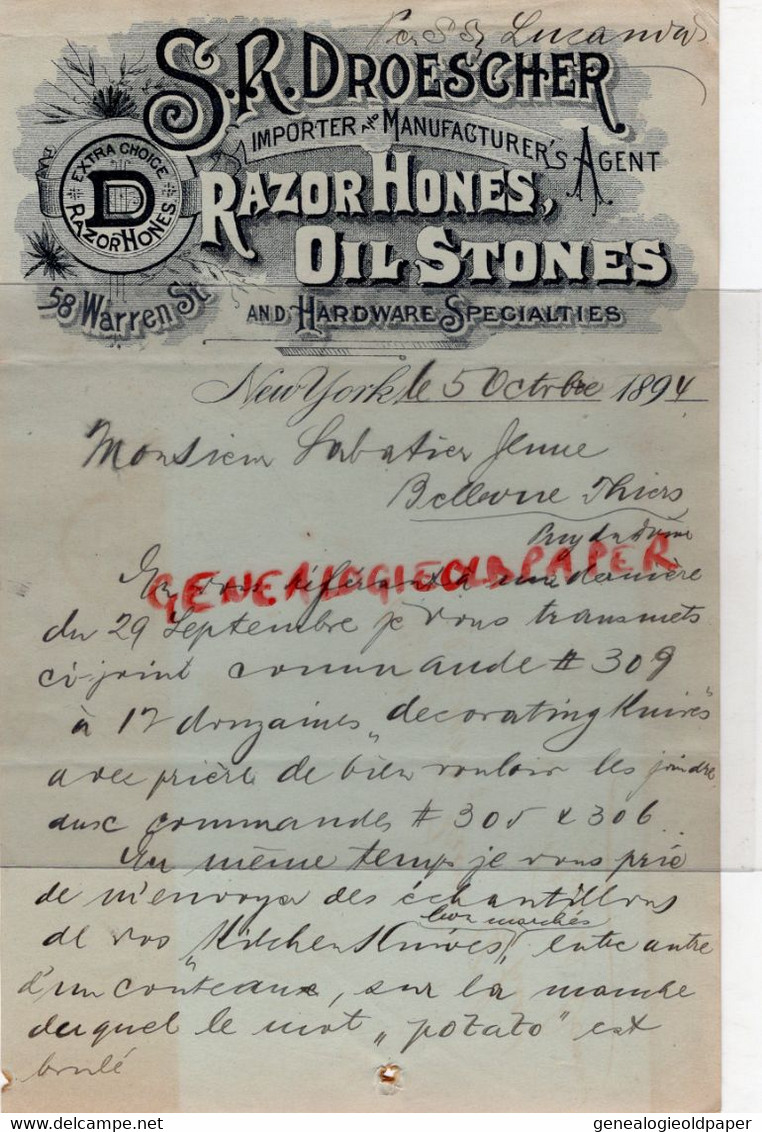 Per SS Lucania
S.R. DROESCHER
IMPORTER AND MANUFACTURER'S AGENT
EXTRA CHOICE
D
RAZOR HONES
RAZOR HONES,
OIL STONES
58 Warren St.
AND HARDWARE SPECIALTIES
New York, le 5 Octobre 1894
Monsieur Sabatier Jeune
Bellevue Thiers
Puy de Dôme
GENEALOGIEOLDPAPER
En vous référant à ma dernière
du 29 Septembre je vous transmets
ci-joint commande # 309
à 17 douzaines „decorating Knives"
avec prière de bien vouloir les joindre
aux commandes # 305 & 306.
En même temps je vous prie
de m'envoyer des échantillons
bon marchés
de vos „Kitchen Knives", entre autre
d'un couteaux, sur la manche
duquel le mot „potato" est
brulé
genealogieoldpaper